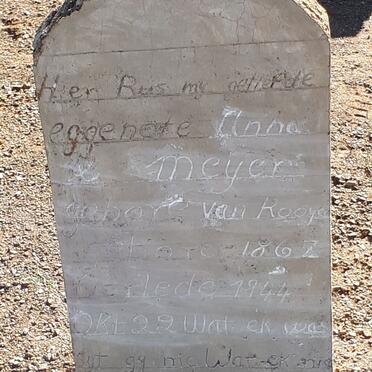 Hier Rus my geliefde
eggenote Anna
Meyer
gebore van Rooye
1867
1944
OKT 22 Wat ek was
gy nie Wat ek